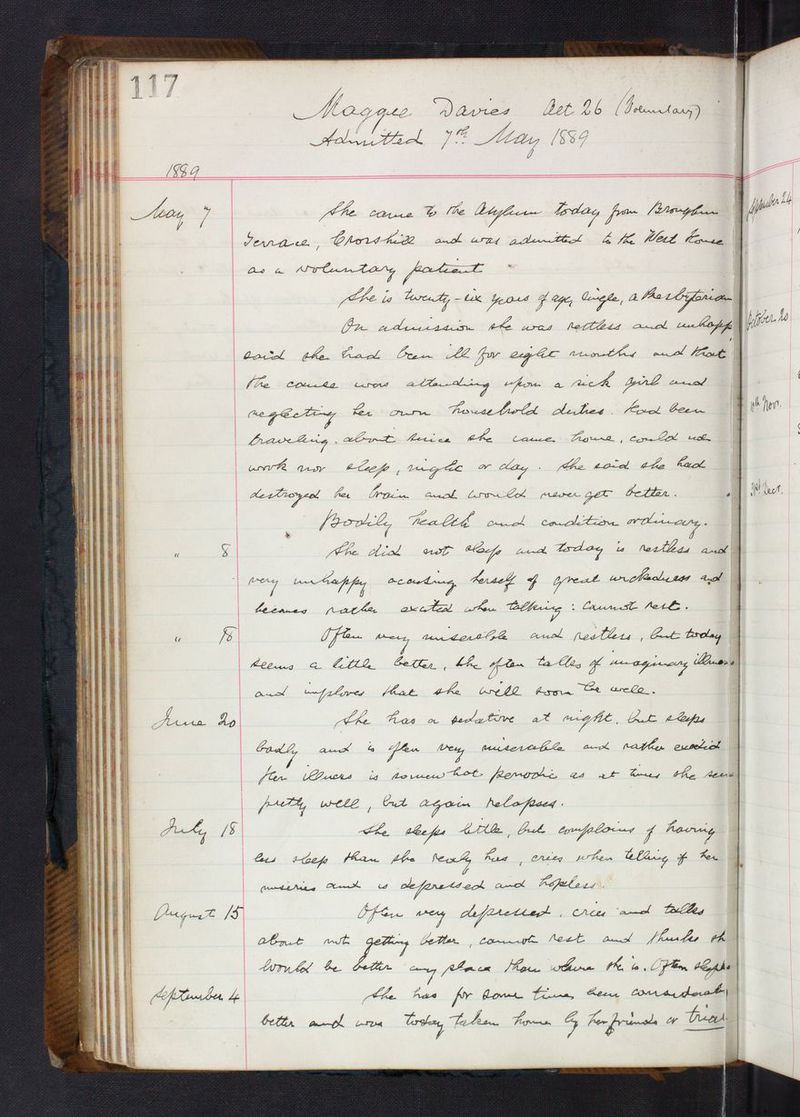 117
Maggie Davies Aet 26 (Voluntary)
Admitted 7th May 1889
1889
May 7 She came to the Asylum today from Brougham
Terrace, Crosshill and was admitted to the West House
as a voluntary patient
She is twenty-six years of age, single, a Presbyterian
On admission she was restless and unhapp
said she had been ill for eight months and that
the cause was attending upon a sick girl and
neglecting her own household duties. Had been
traveling about since she came home, could not
work nor sleep, night or day. She said she had
destroyed her brain and would never get better.
Bodily health and condition ordinary.
" 8 She did not sleep and today is restless and
very unhappy accusing herself of great wickedness and
becomes rather excited when talking: cannot rest.
" 18 Often very miserable and restless, but today
seems a little better, she often talks of imaginary illness
and implores that she will soon be well.
June 20 She has a sedative at night, but sleeps
badly and is often very miserable and rather excited
Her illness is somewhat periodic as at times she
pretty well, but again relapses.
July 18 She sleeps little, but complains of having
less sleep than she really has, cries when telling of her
miseries and is depressed and hopless.
August 15 Often very depressed, cries and talks
about not getting better, cannot rest and thinks sh
would be better any place than where she is. Often
September 4 She has for some time been
better and was today taken home by her friends or trial
September 24
October 20
Nov.
31st Decr.